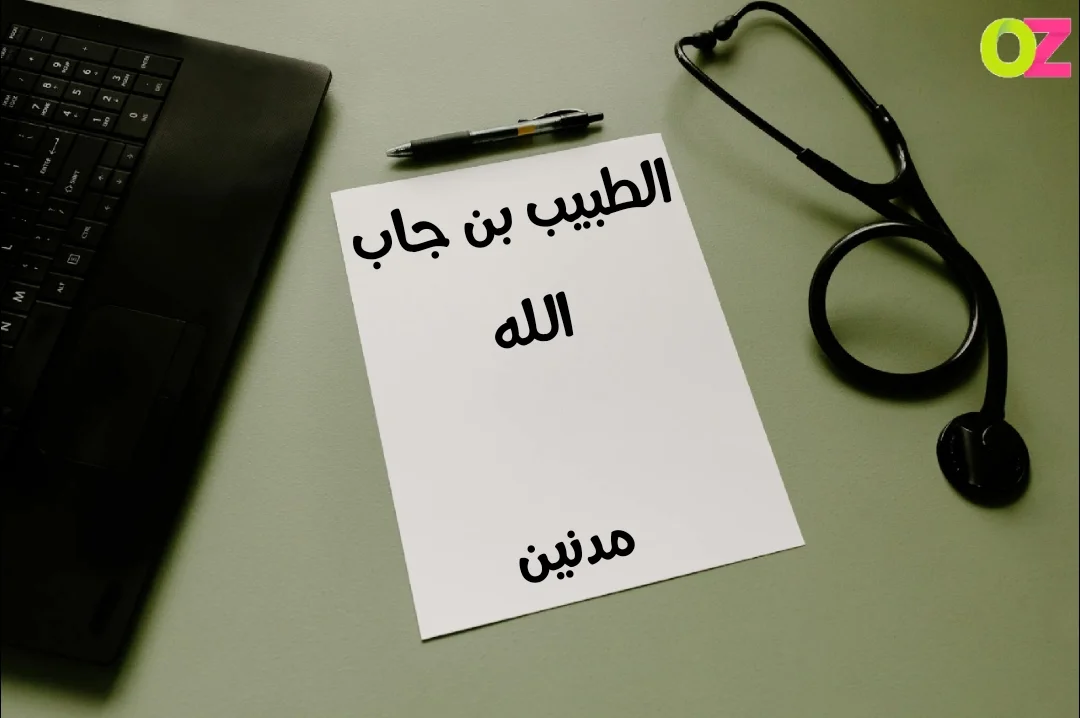 OZ
الطبيب بن جاب
الله
مدنين